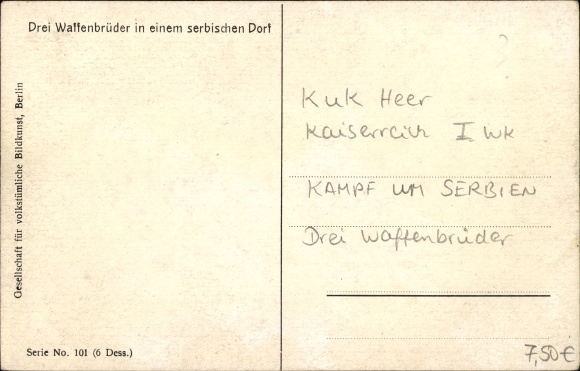 Drei Waffenbrüder in einem serbischen Dorf
Gesellschaft für volkstümliche Bildkunst, Berlin
Serie No. 101 (6 Dess.)
KuK Heer
Kaiserreich I WK
KAMPF UM SERBIEN
Drei Waffenbrüder
7,50 €